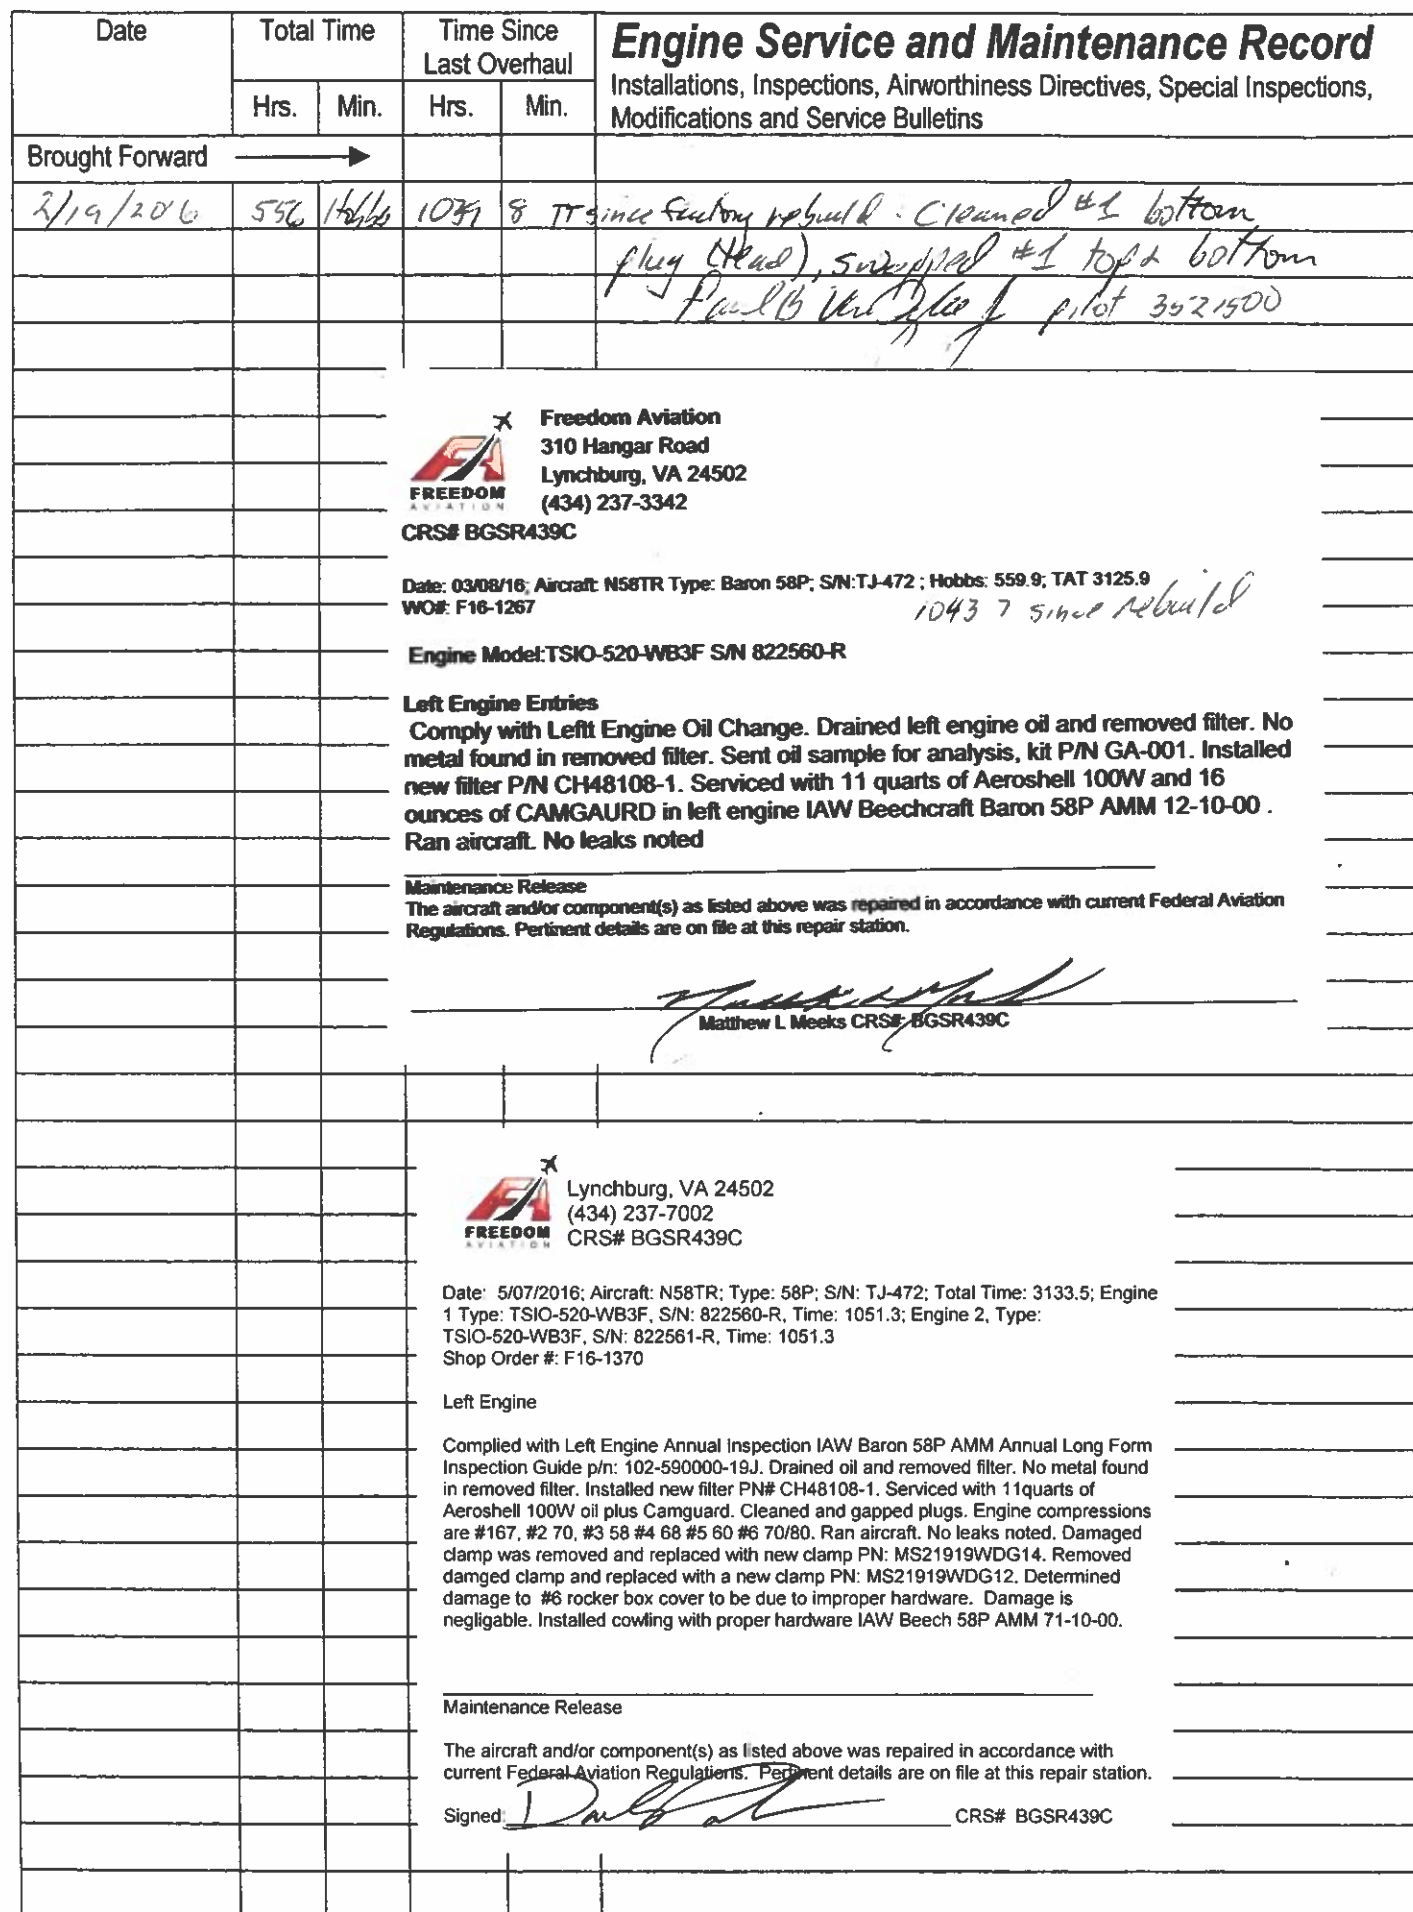 Date Total Time Time Since Last Overhaul Engine Service and Maintenance Record
Installations, Inspections, Airworthiness Directives, Special Inspections,
Hrs. Min. Hrs. Min. Modifications and Service Bulletins
Brought Forward
556 Hobbs 8 TT since factory rebuild. Cleaned #1 bottom
plug (lead), swapped #1 top & bottom
Paul B pilot 3521500
Freedom Aviation
310 Hangar Road
Lynchburg, VA 24502
FREEDOM
AVIATION
(434) 237-3342
CRS# BGSR439C
Date: 03/08/16; Aircraft: N58TR Type: Baron 58P; S/N:TJ-472 ; Hobbs: 559.9; TAT 3125.9
WO#: F16-1267 1043 7 since rebuild
Engine Model:TSIO-520-WB3F S/N 822560-R
Left Engine Entries
Comply with Leftt Engine Oil Change. Drained left engine oil and removed filter. No
metal found in removed filter. Sent oil sample for analysis, kit P/N GA-001. Installed
new filter P/N CH48108-1. Serviced with 11 quarts of Aeroshell 100W and 16
ounces of CAMGAURD in left engine IAW Beechcraft Baron 58P AMM 12-10-00 .
Ran aircraft. No leaks noted
Maintenance Release
The aircraft and/or component(s) as listed above was repaired in accordance with current Federal Aviation
Regulations. Pertinent details are on file at this repair station.
Matthew L Meeks CRS#: BGSR439C
Lynchburg, VA 24502
(434) 237-7002
FREEDOM
AVIATION
CRS# BGSR439C
Date: 5/07/2016; Aircraft: N58TR; Type: 58P; S/N: TJ-472; Total Time: 3133.5; Engine
1 Type: TSIO-520-WB3F, S/N: 822560-R, Time: 1051.3; Engine 2, Type:
TSIO-520-WB3F, S/N: 822561-R, Time: 1051.3
Shop Order #: F16-1370
Left Engine
Complied with Left Engine Annual Inspection IAW Baron 58P AMM Annual Long Form
Inspection Guide p/n: 102-590000-19J. Drained oil and removed filter. No metal found
in removed filter. Installed new filter PN# CH48108-1. Serviced with 11quarts of
Aeroshell 100W oil plus Camguard. Cleaned and gapped plugs. Engine compressions
are #167, #2 70, #3 58 #4 68 #5 60 #6 70/80. Ran aircraft. No leaks noted. Damaged
clamp was removed and replaced with new clamp PN: MS21919WDG14. Removed
damged clamp and replaced with a new clamp PN: MS21919WDG12. Determined
damage to #6 rocker box cover to be due to improper hardware. Damage is
negligable. Installed cowling with proper hardware IAW Beech 58P AMM 71-10-00.
Maintenance Release
The aircraft and/or component(s) as listed above was repaired in accordance with
current Federal Aviation Regulations. Pertinent details are on file at this repair station.
Signed: CRS# BGSR439C